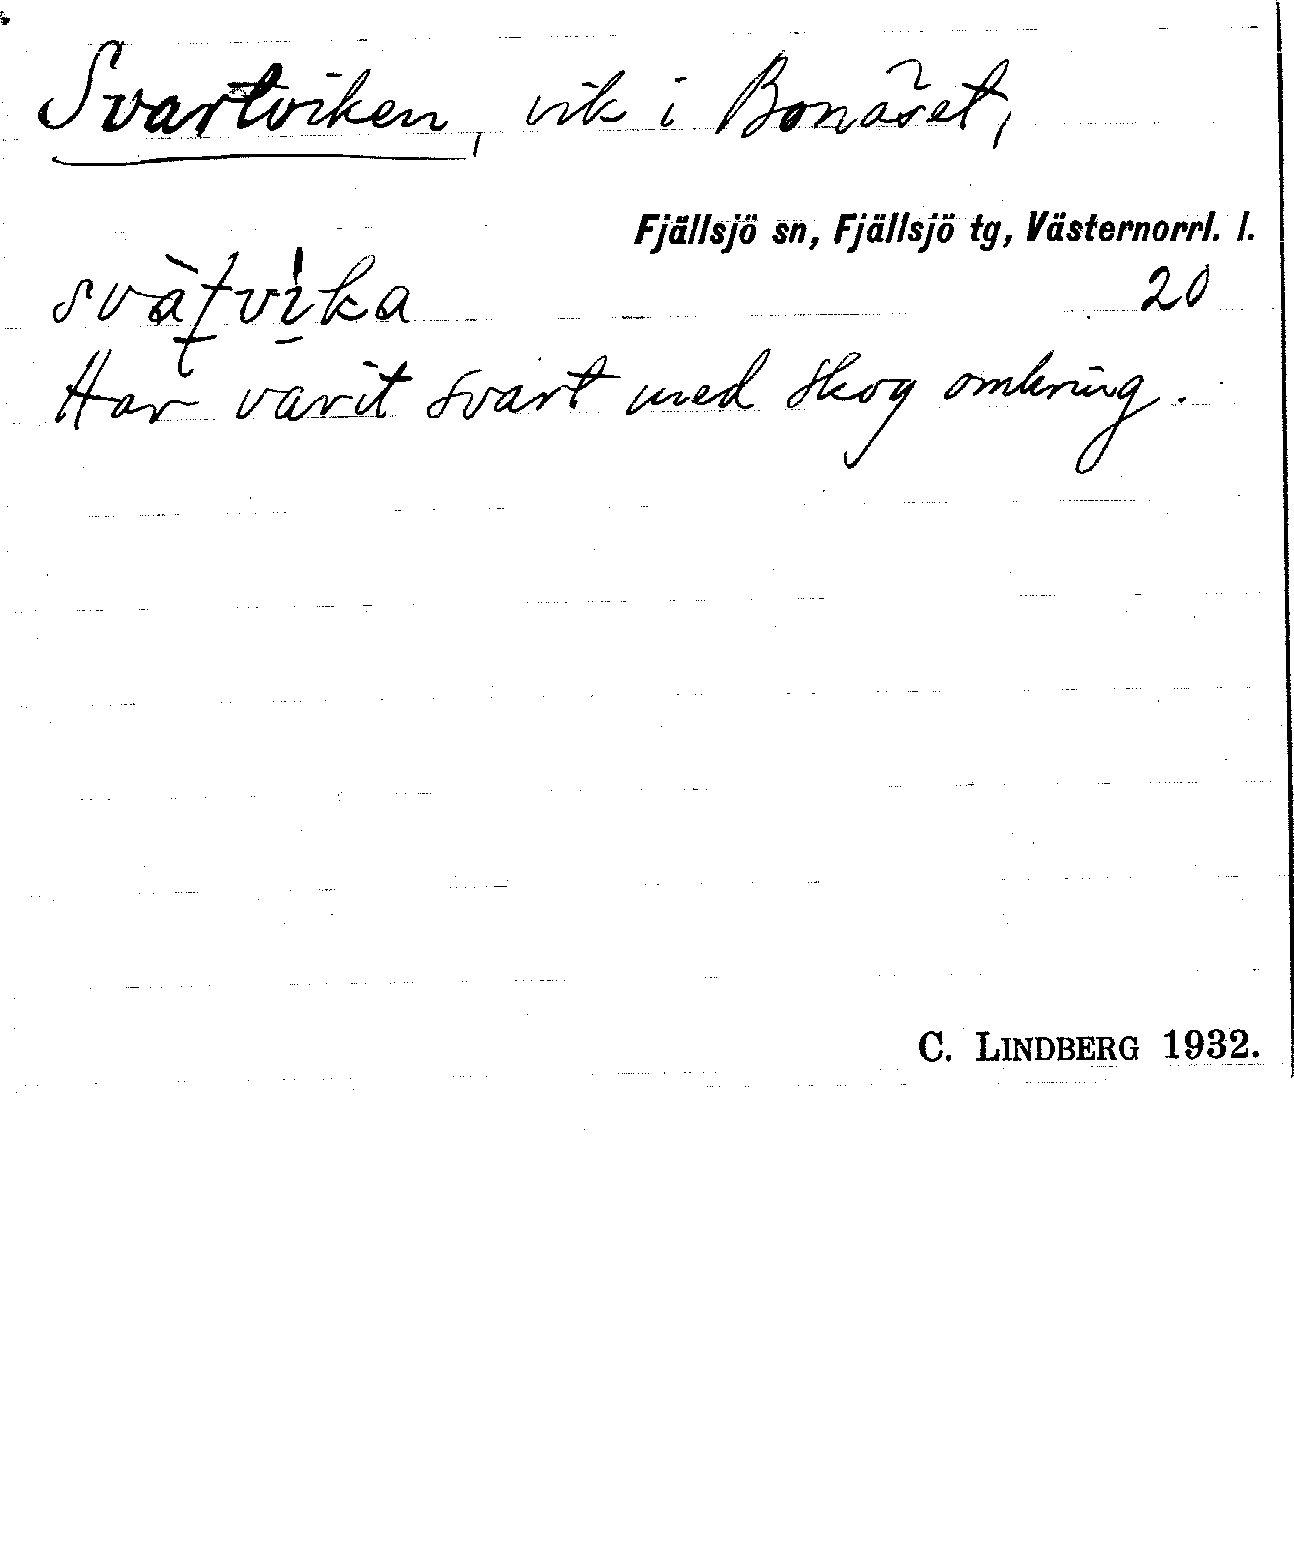 Svartviken, vik i Bonäset,
Fjällsjö sn, Fjällsjö tg, Västernorrl. l.
20
Har varit svart med skog omkring.
C. LINDBERG 1932.